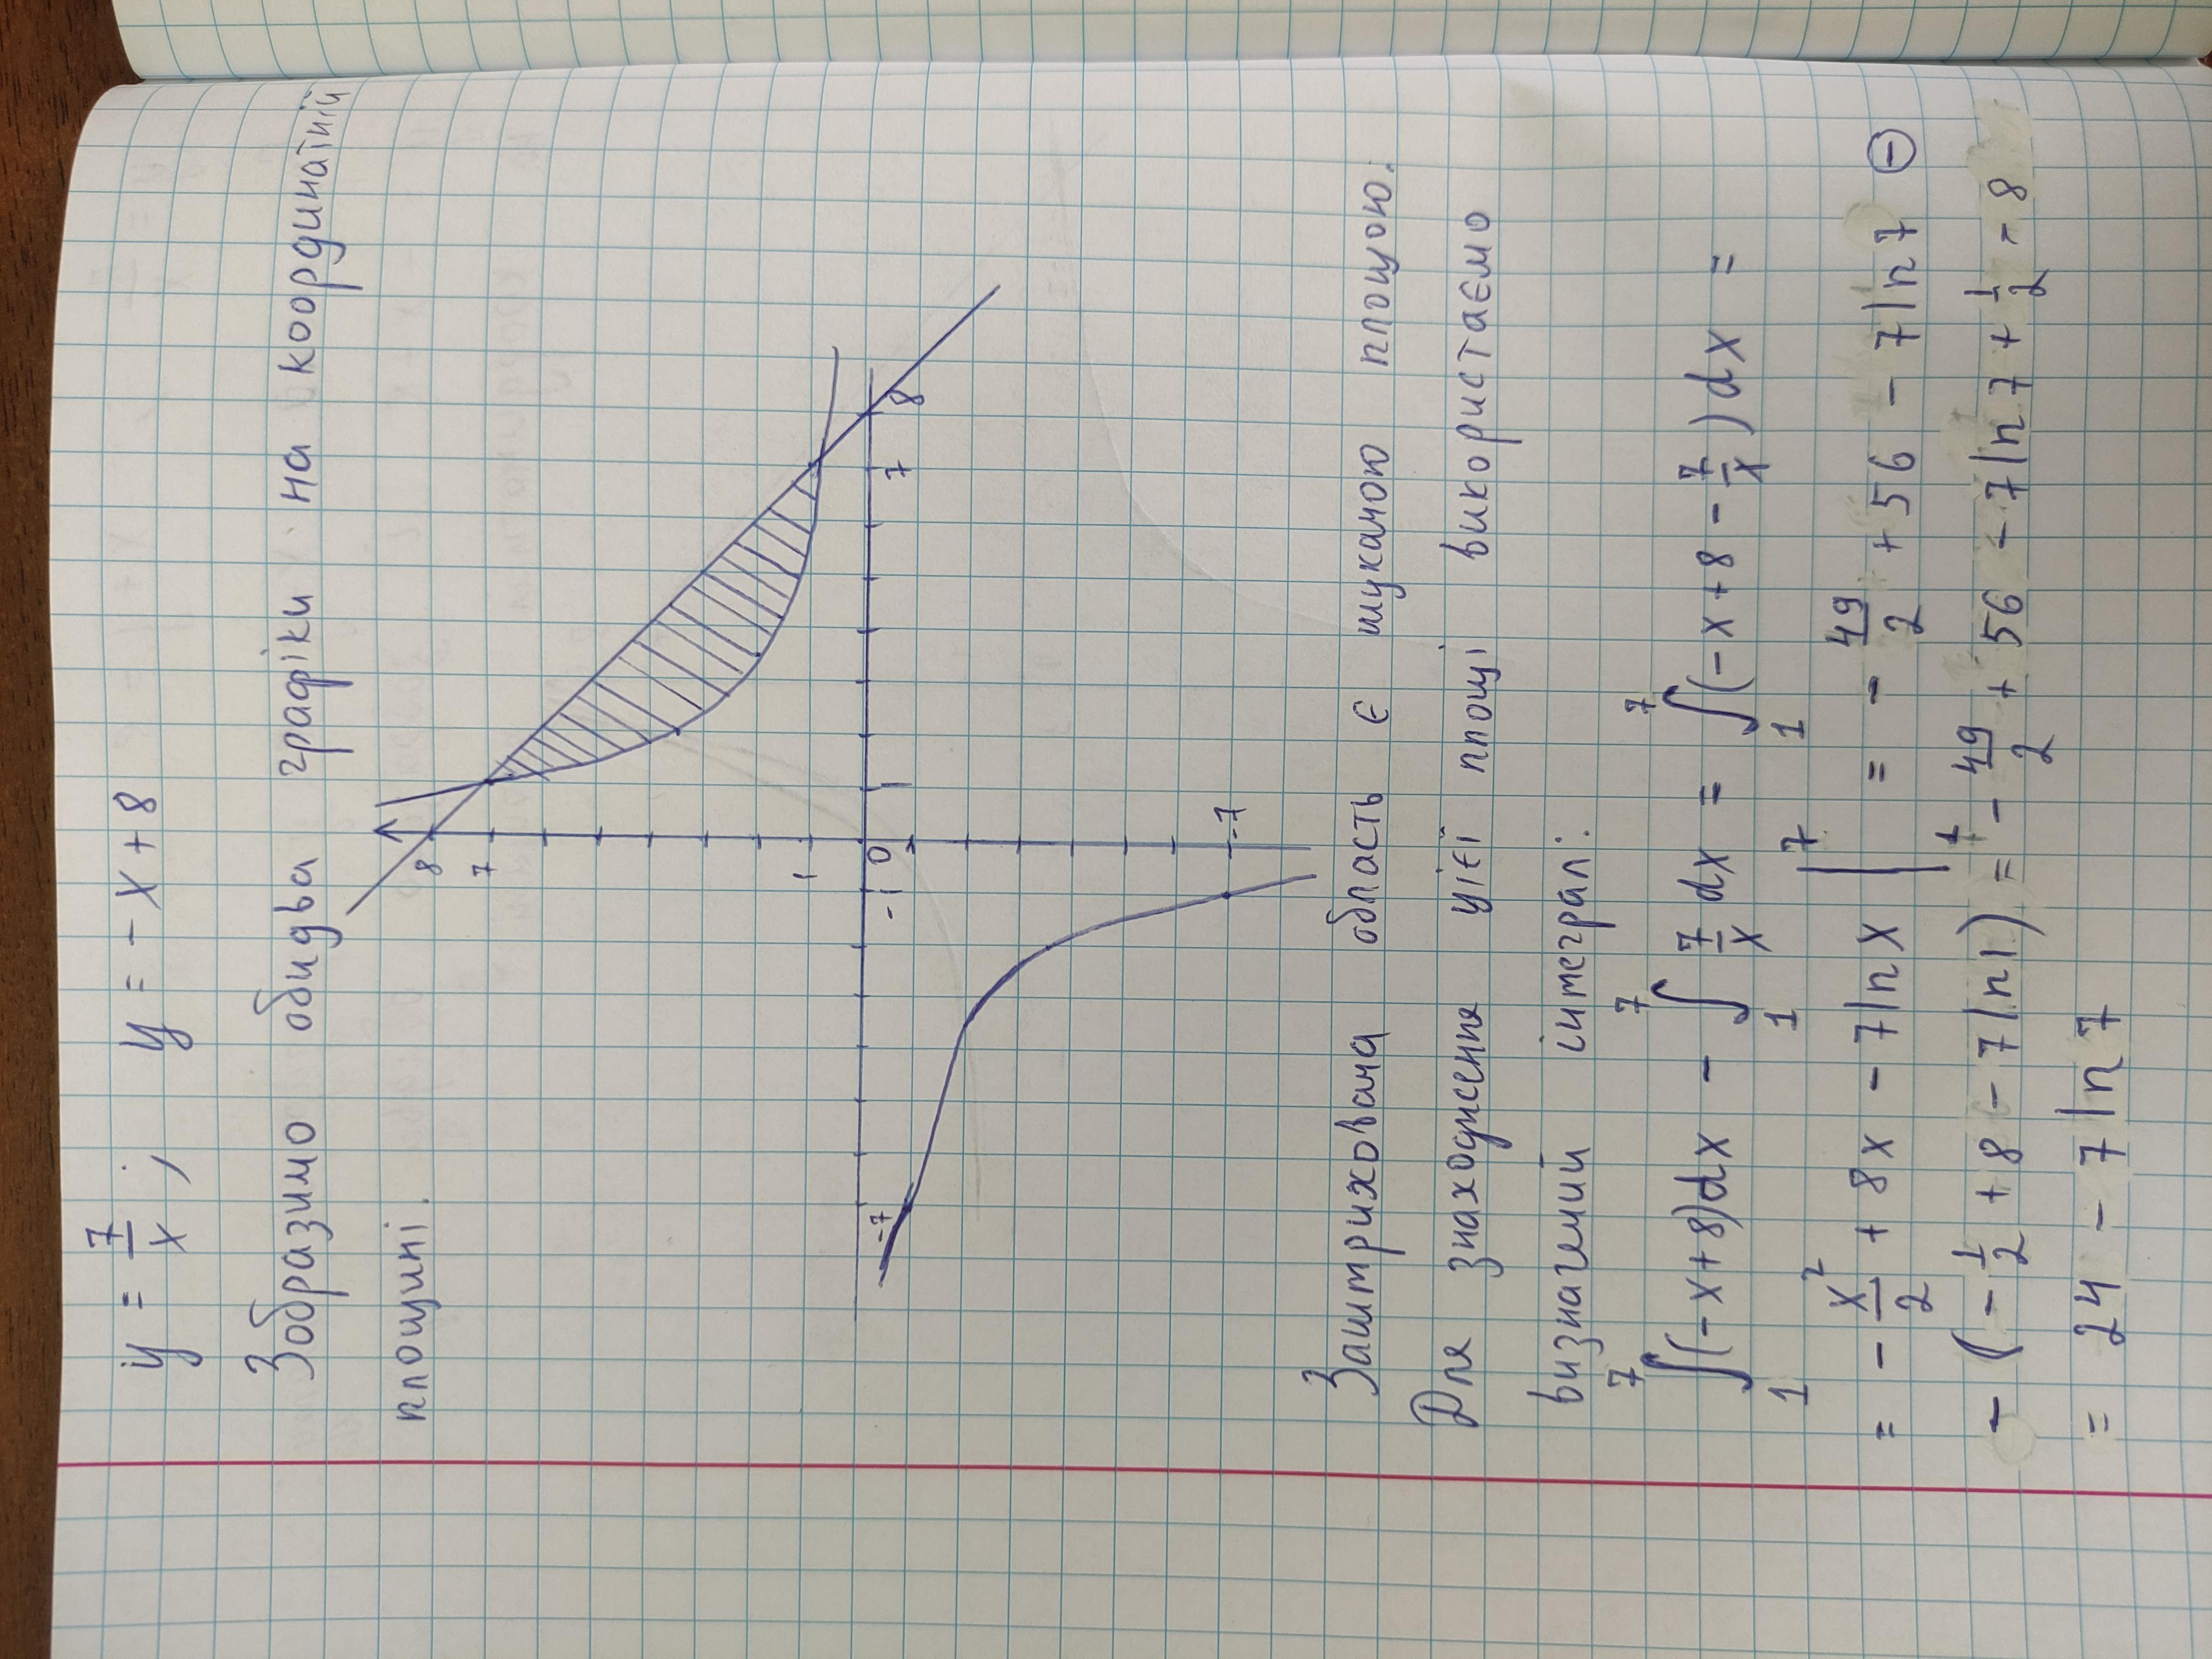 y = 7/x ; y = - x + 8
Зобразимо обидва графіки на координатній
площині.
8
7
1
-7 -1 0 1 7 8
-7
Заштрихована область є шуканою площою.
Для знаходження цієї площі використаємо
визначений інтеграл:
∫₁⁷(-x+8)dx - ∫₁⁷ 7/x dx = ∫₁⁷(-x+8-7/x)dx =
= - x²/2 + 8x - 7lnx |₁⁷ = - 49/2 + 56 - 7ln7 ⊖
- (- 1/2 + 8 - 7ln1) = - 49/2 + 56 - 7ln7 + 1/2 - 8
= 24 - 7ln7